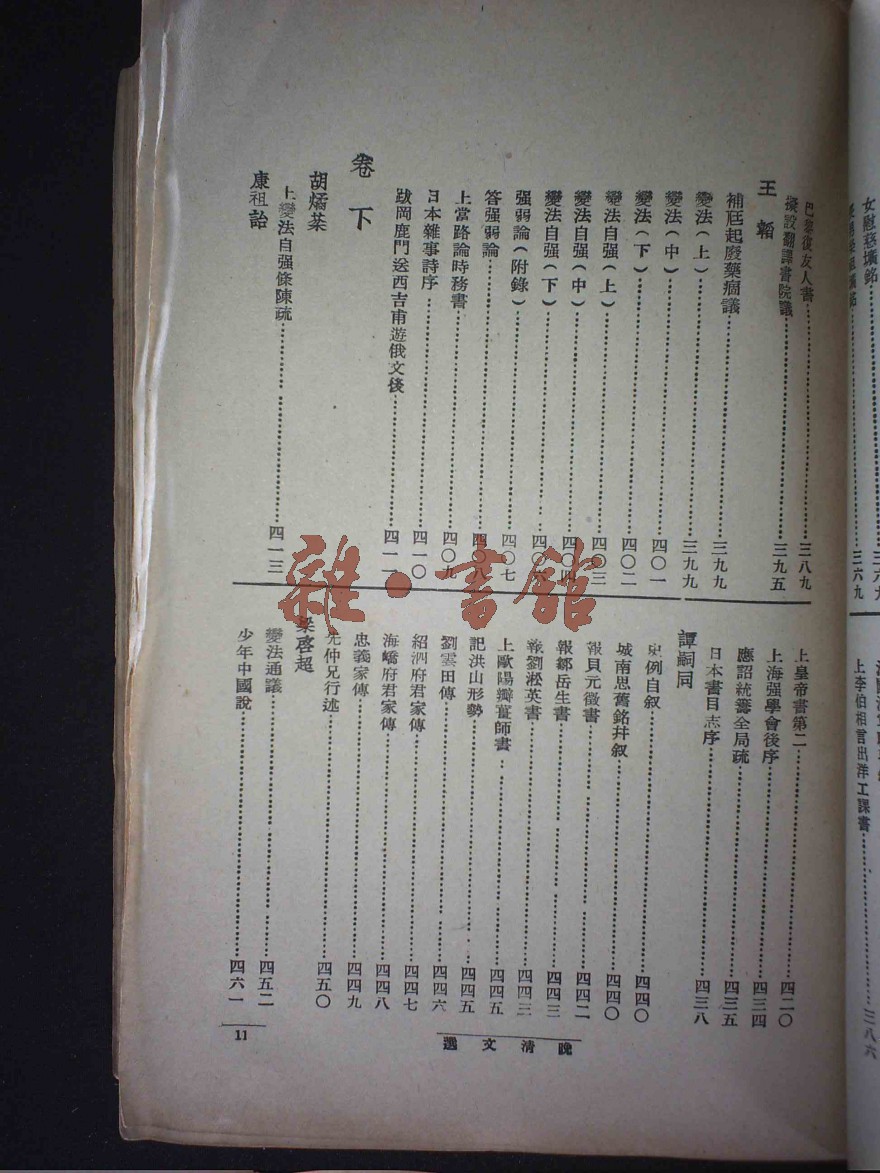 巴黎復友人書……三八九
擬設翻譯書院議……三九五
王韜
補尫起廢藥痼議……三九九
變法（上）……三九九
變法（中）……四〇一
變法（下）……四〇二
變法自强（上）……四〇三
變法自强（中）……四〇四
變法自强（下）……四〇六
强弱論（附錄）……四〇七
答强弱論……四〇八
上當路論時務書……四〇九
日本雜事詩序……四一〇
跋岡鹿門送西吉甫遊俄文後……四一一
卷下
胡燏棻
上變法自强條陳疏……四一三
康祖詒
上皇帝書第二……四二〇
上海强學會後序……四三四
應詔統籌全局疏……四三五
日本書目志序……四三八
譚嗣同
史例自叙……四四〇
城南思舊銘幷叙……四四〇
報貝元徵書……四四二
報鄒岳生書……四四三
報劉淞英書……四四三
上歐陽瓣薑師書……四四五
記洪山形勢……四四五
劉雲田傳……四四六
紹泗府君家傳……四四七
海嶠府君家傳……四四八
忠義家傳……四四九
先仲兄行述……四五〇
梁啓超
變法通議……四五二
少年中國說……四六一
晚清文選
11
女慰愁壙銘……三六九
三六九
上李伯相言出洋工課書……三八六
雜·書館